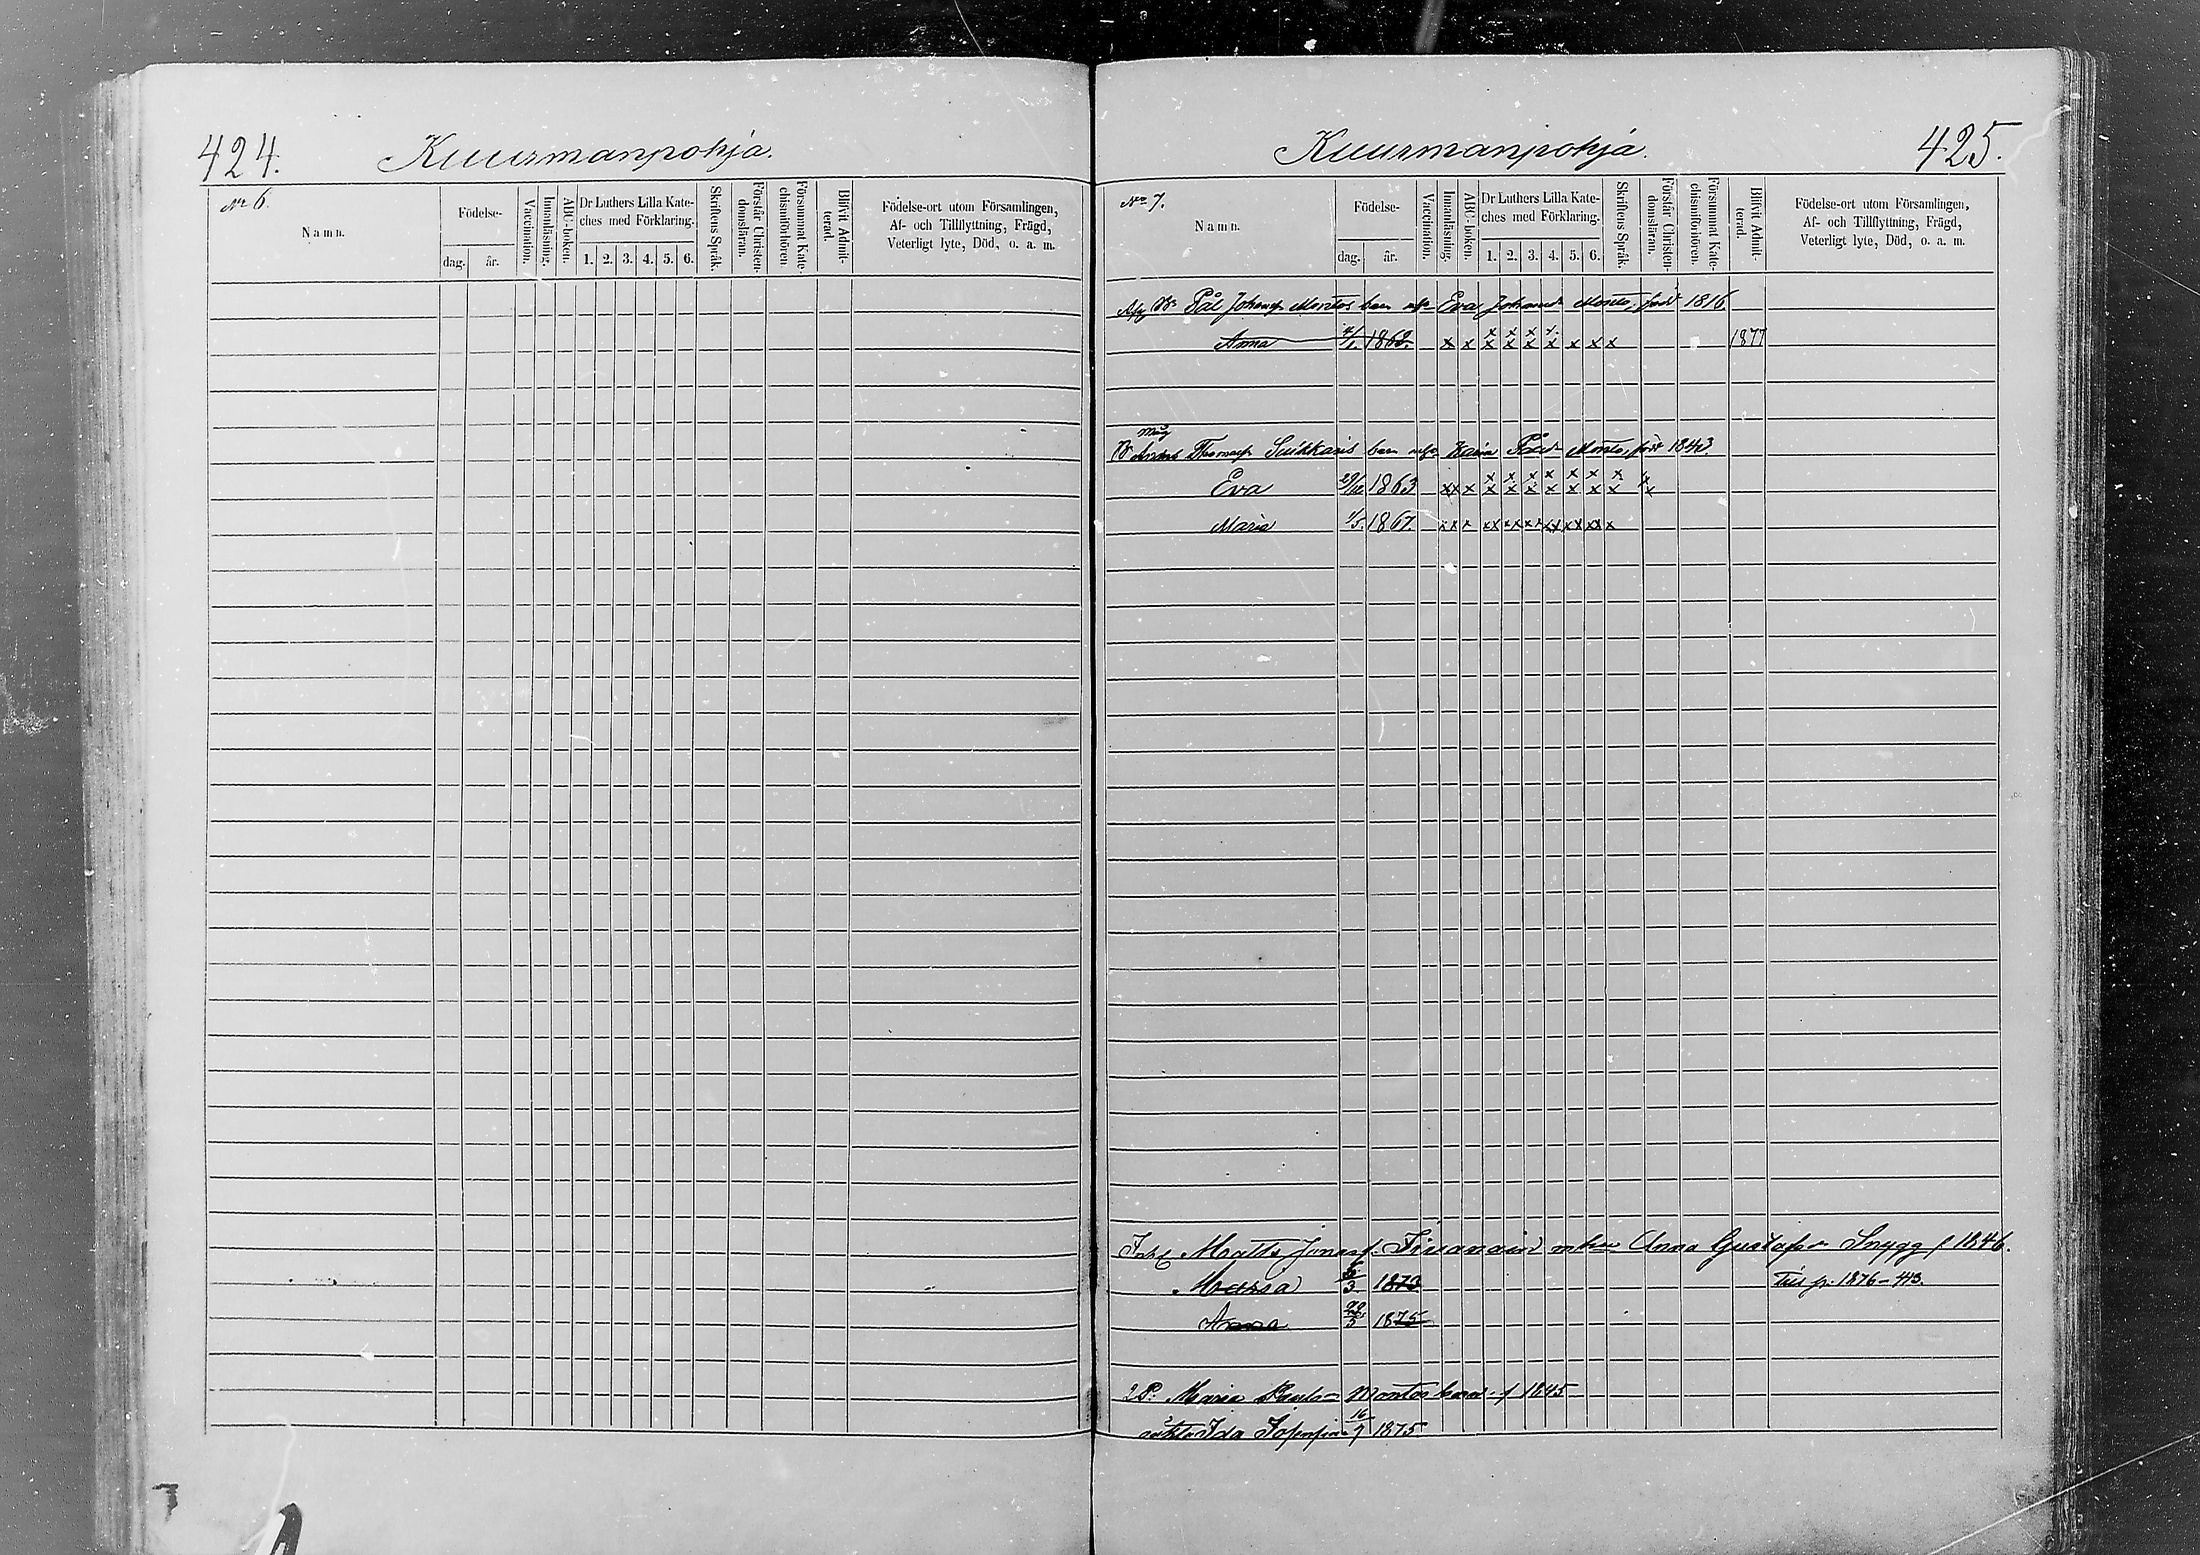 424.
Kuurmanpohja.
No 6.
Namn.
Födelse-
dag.
år.
Vaccination.
Innanläsning.
ABC-boken.
Dr Luthers Lilla Kate-
ches med Förklaring.
1. 2. 3. 4. 5. 6.
Skriftens Språk.
Förstår Christen-
domsläran.
Försummat Kate-
chismiförhören.
Blifvit Admit-
terad.
Födelse-ort utom Församlingen,
Af- och Tillflyttning, Frägd,
Veterligt lyte, Död, o. a. m.
Kuurmanpohja.
425.
No 7.
Namn.
Födelse-
dag.
år.
Vaccination.
Innanläsning.
ABC-boken.
Dr Luthers Lilla Kate-
ches med Förklaring.
1. 2. 3. 4. 5. 6.
Skriftens Språk.
Förstår Christen-
domsläran.
Försummat Kate-
chismiförhören.
Blifvit Admit-
terad.
Födelse-ort utom Församlingen,
Af- och Tillflyttning, Frägd,
Veterligt lyte, Död, o. a. m.
Pål Johansf Montos barn Eva Johansdr Monto, född 1816.
x x x x
Anna 1862. x x x x x x x x x 1877
Måg
Thomasf Suikkaris barn Pålsdr Monto, född 1843
x x x x x x x x
Eva 29/12 1863 xx x x x x x x x x x
Maria 1/5 1867. xx x xx xx xx xx xx xx x
Matts Jonasf. Anna Gustafsdr Snygg f 1846.
Maria 6/3 1873 1876-443.
Anna 20/5 1875
Maria Montos barn f 1845
Ida Josefina 16/7 1875